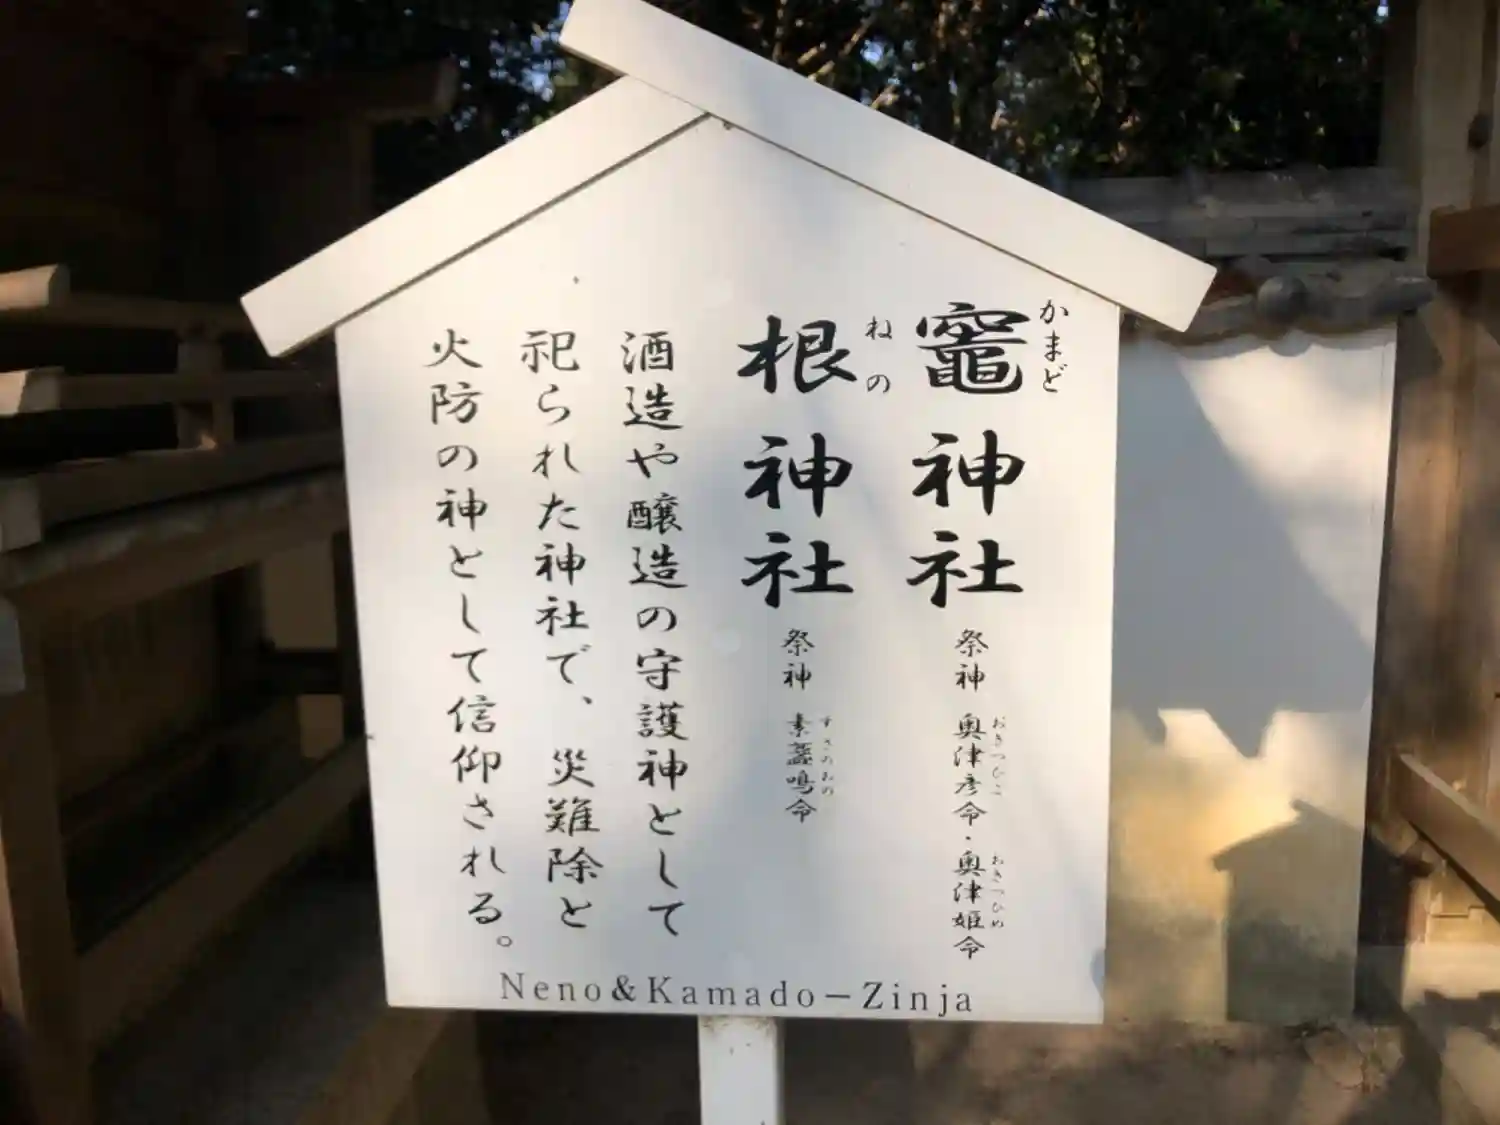 竈神社 祭神 奥津彦命・奥津姫命
かまど
おきつひこ
おきつひめ
根神社 祭神 素盞鳴命
ねの
すさのおの
酒造や醸造の守護神として
祀られた神社で、災難除と
火防の神として信仰される。
Neno&Kamado－Zinja